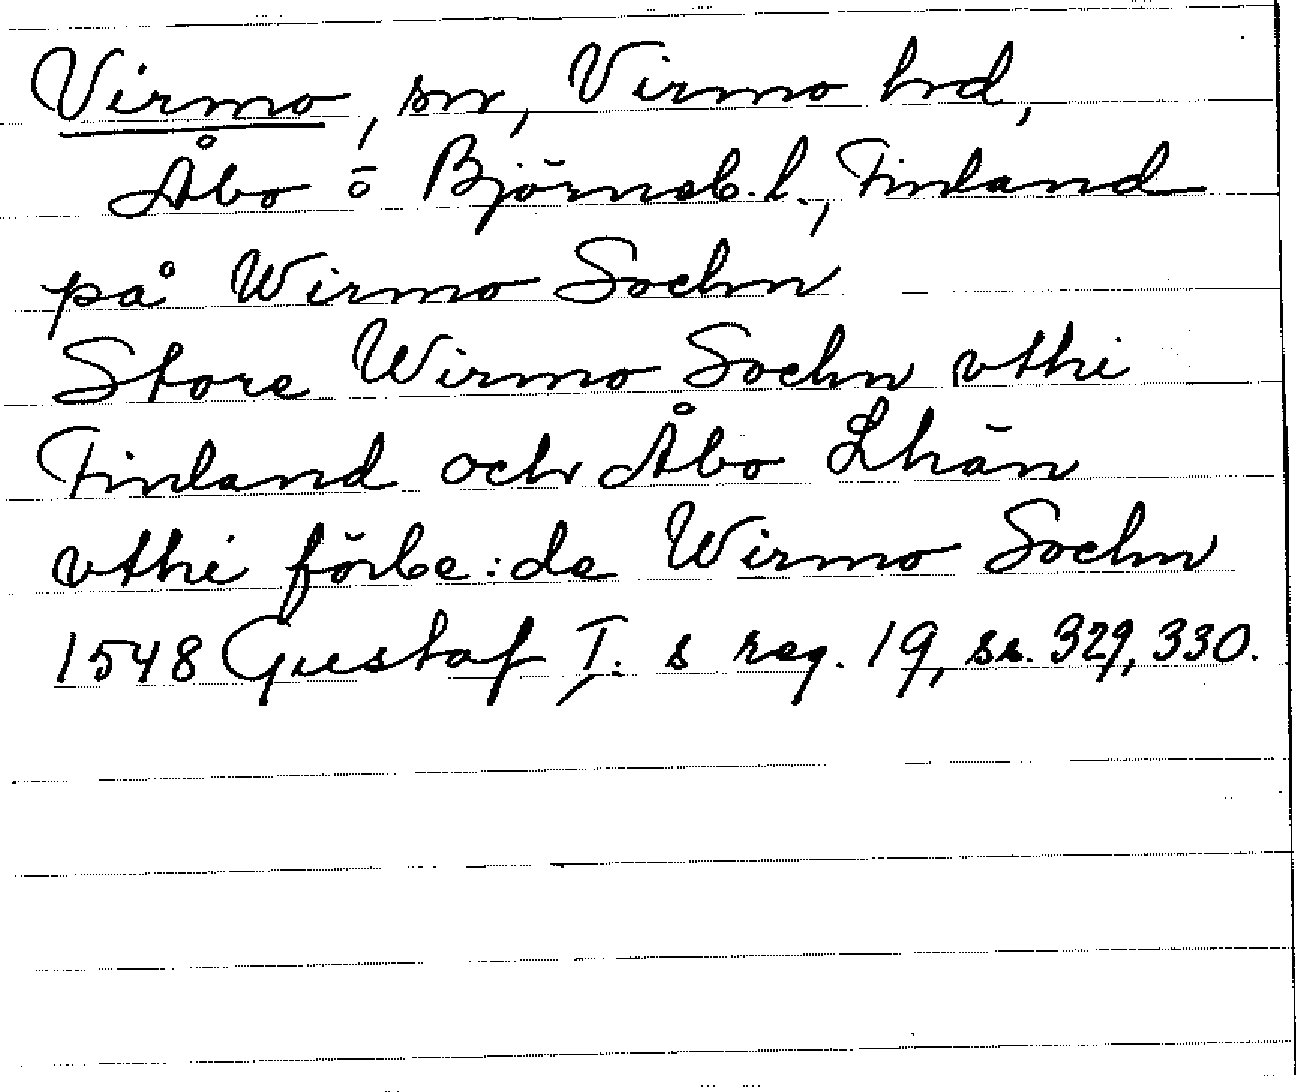 Virmo, sn, Virmo hrd,
Åbo ō Björneb. l., Finland
på Wirmo Sochn
Store Wirmo Sochn vthi
Finland och Åbo Lhän
vthi förbe:de Wirmo Sochn
1548 Gustaf I. s reg. 19, ss. 329, 330.